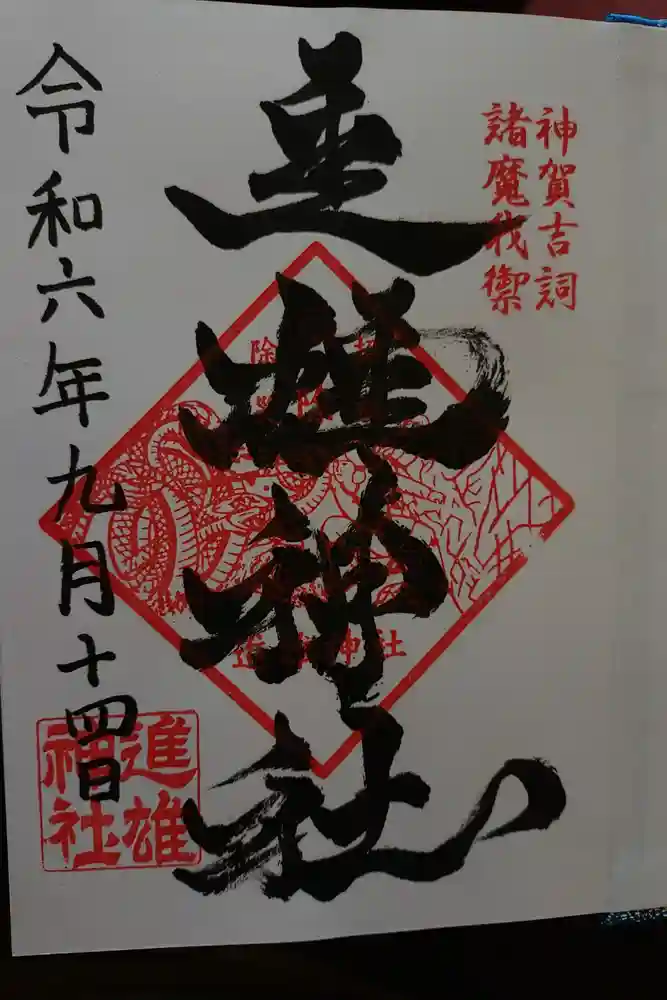 神賀吉詞
諸魔伐禦
進雄神社
除
神社
令和六年九月十四日
進雄
神社